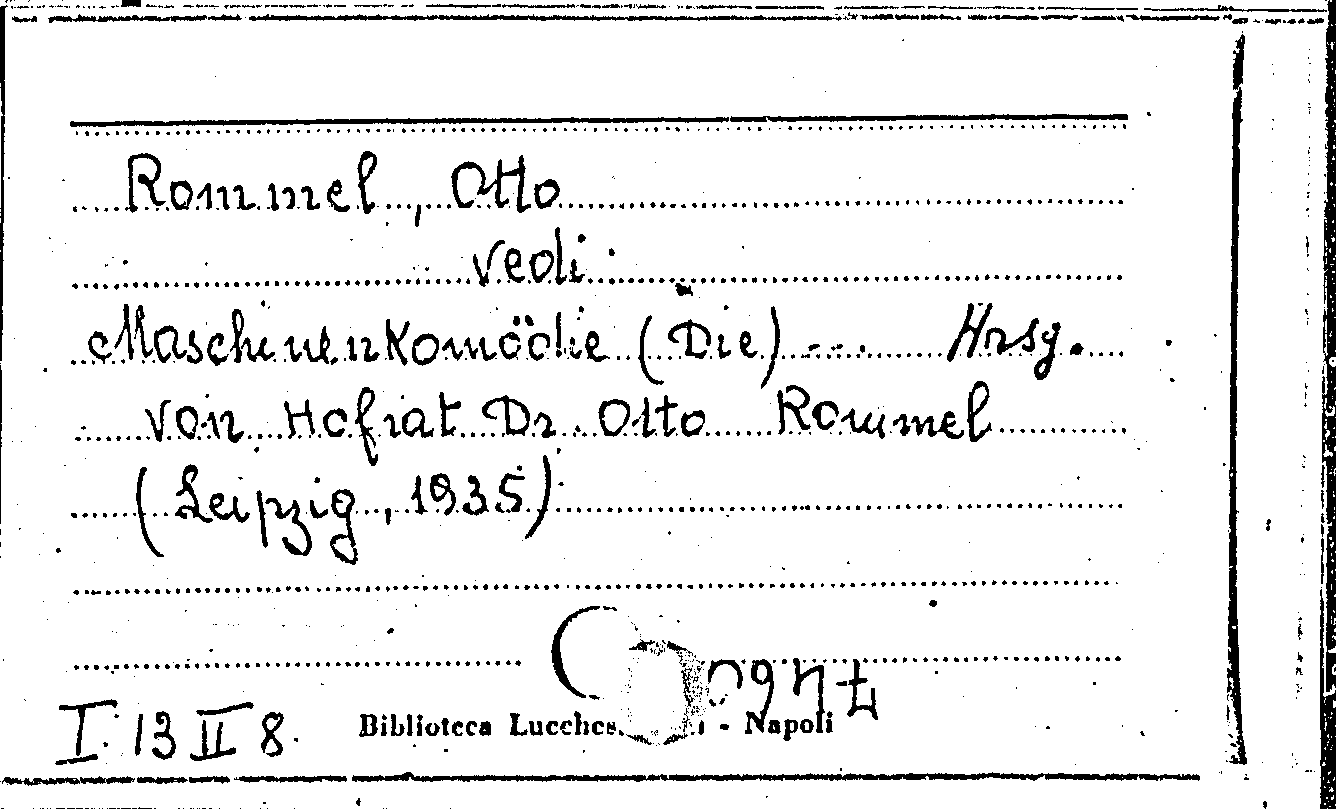 Rommel, Otto
vedi:
Maschinenkomödie (Die) ... Hrsg.
von Hofrat Dr. Otto Rommel
(Leipzig, 1935)
I 13 II 8.
Biblioteca - Napoli